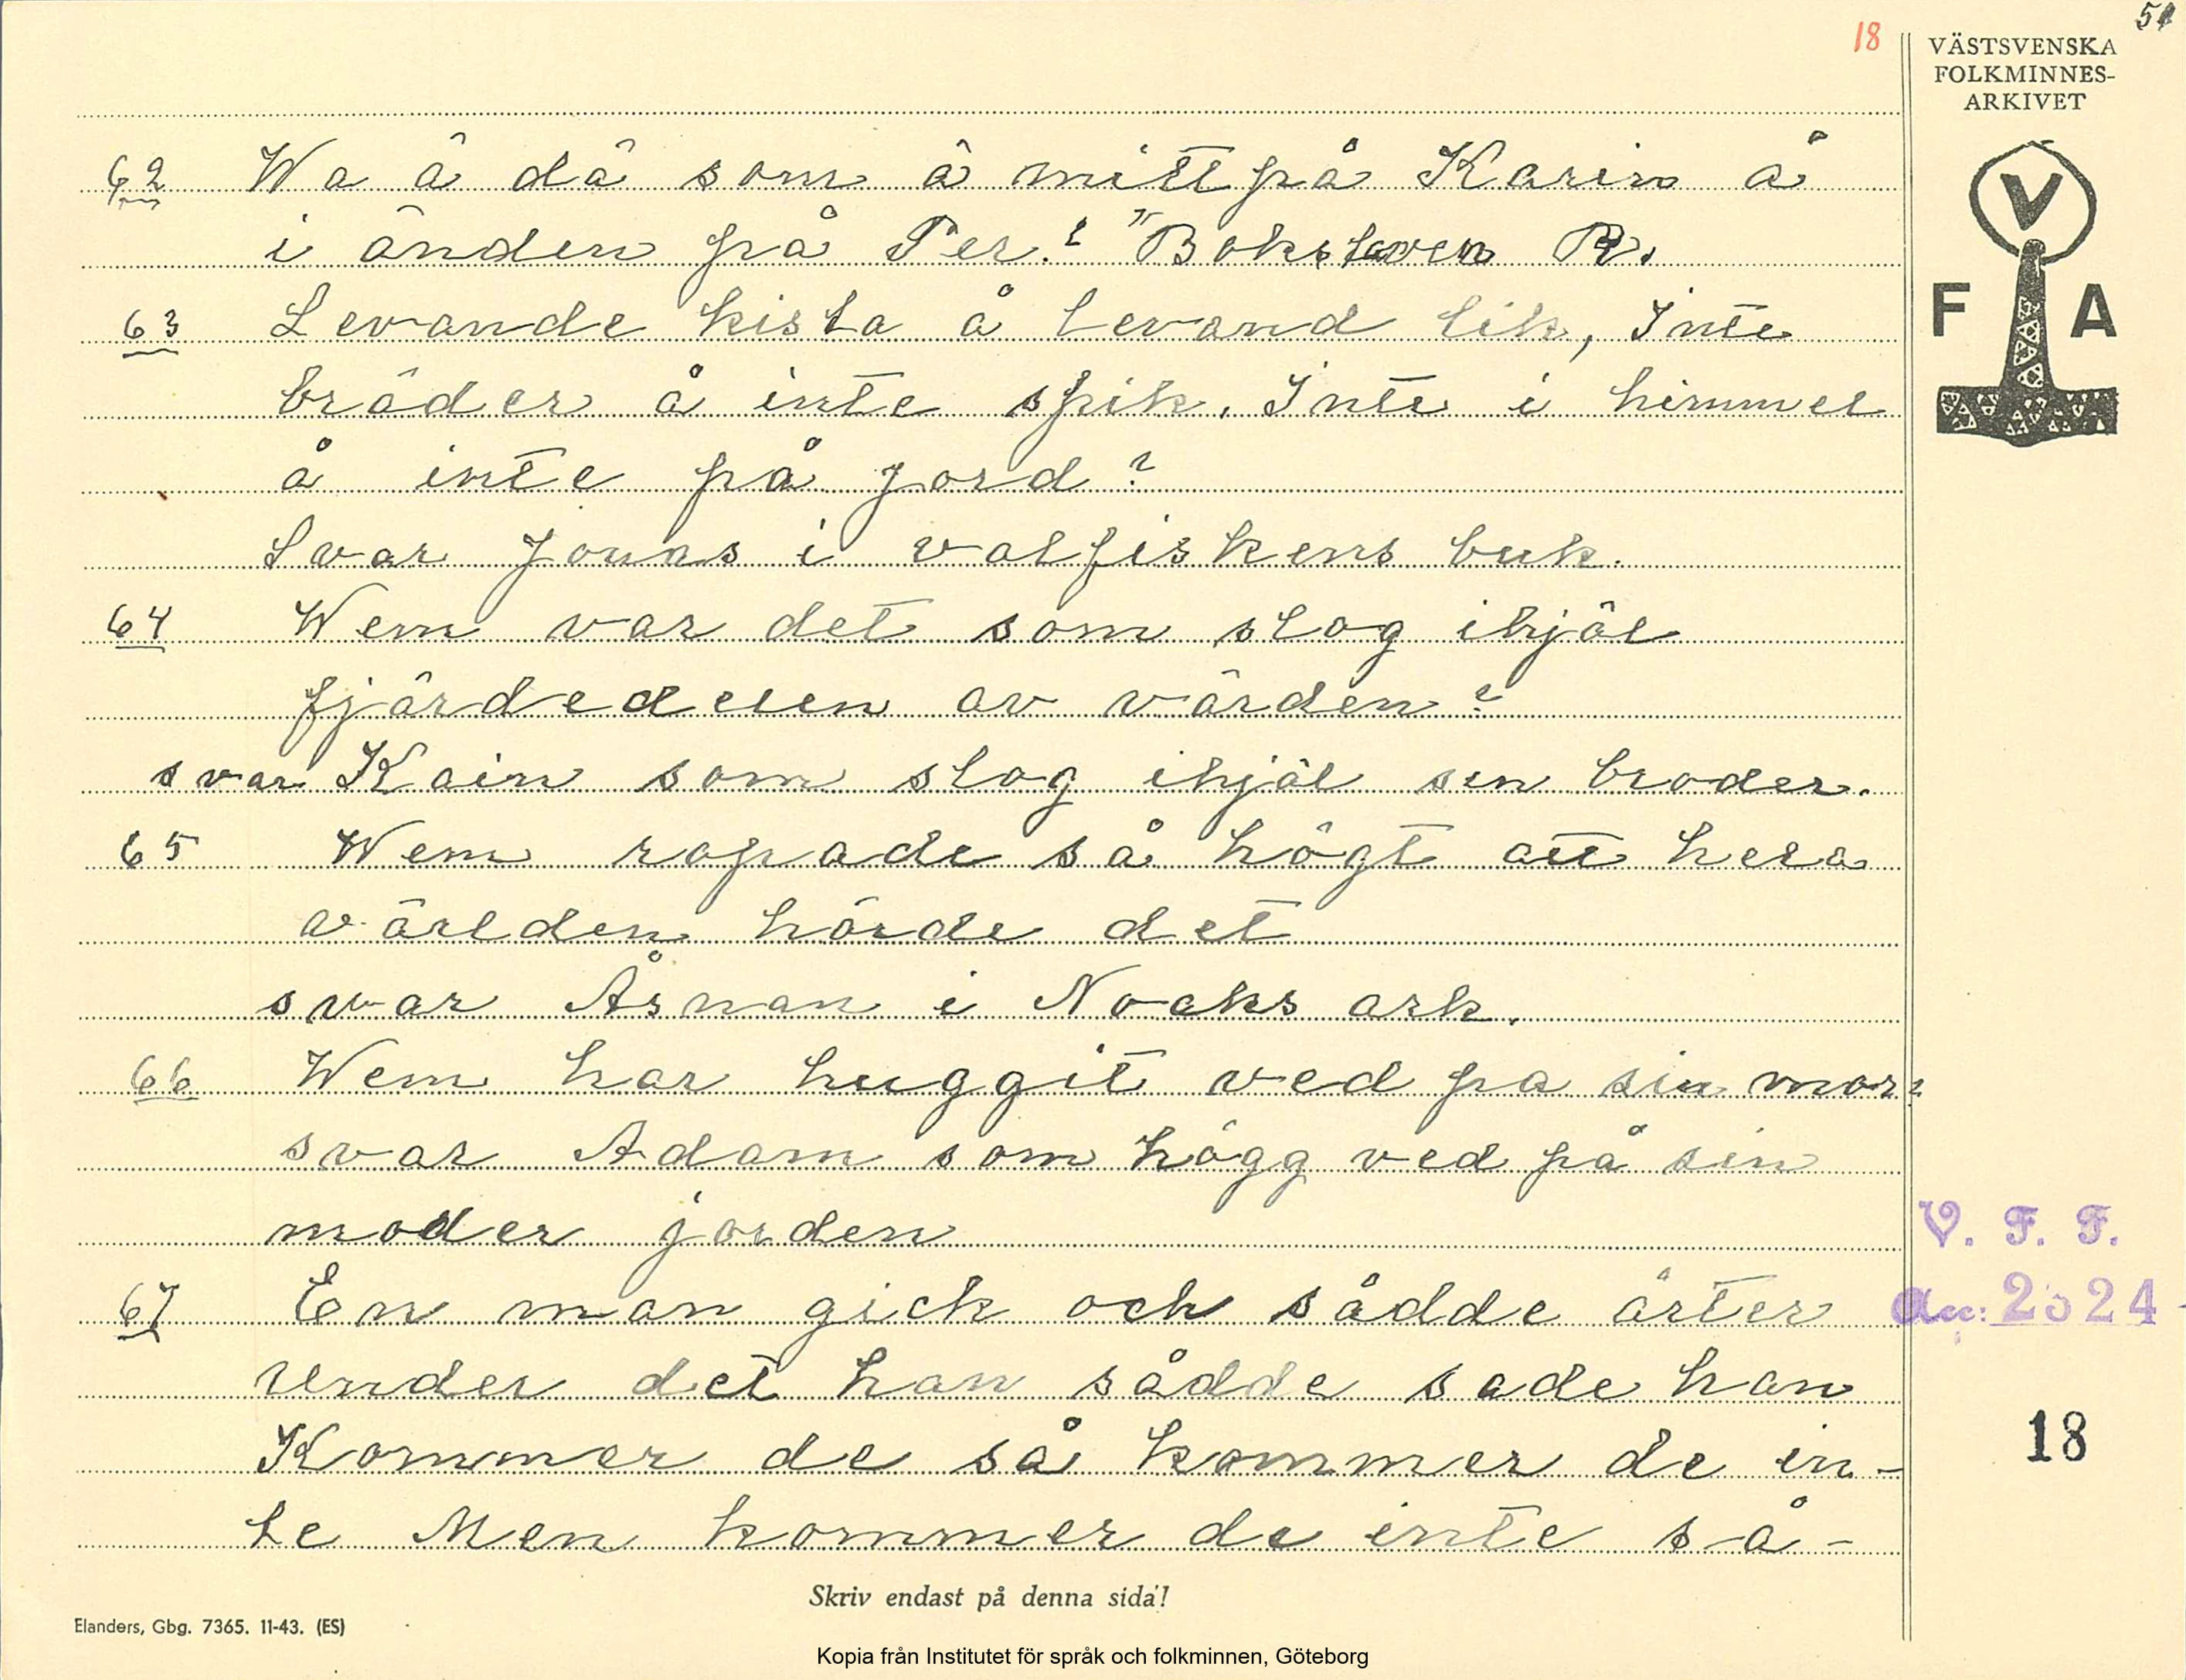 18
51
VÄSTSVENSKA
FOLKMINNES-
ARKIVET
V
F A
62 Wa ä dä som ä mitt på Karin å
i änden på Per? "Bokstaven R.
63 Levande kista å levand lik, Inte
bräder å inte spik. Inte i himmel
å inte på jord?
Svar Jonas i valfiskens buk.
64 Wem var det som slog ihjäl
fjärdedelen av värden?
svar Kain som slog ihjäl sen broder.
65 Wem ropade så högt att hela
världen hörde det
svar Åsnan i Noaks ark.
66 Wem har huggit ved pa sin mor?
svar Adam som högg ved på sin
moder jorden
67 En man gick och sådde ärter
Under det han sådde sade han
Kommer de så kommer de in-
te Men kommer de inte så-
V. F. F.
Acc: 2324
18
Skriv endast på denna sida!
Elanders, Gbg. 7365. 11-43. (ES)
Kopia från Institutet för språk och folkminnen, Göteborg